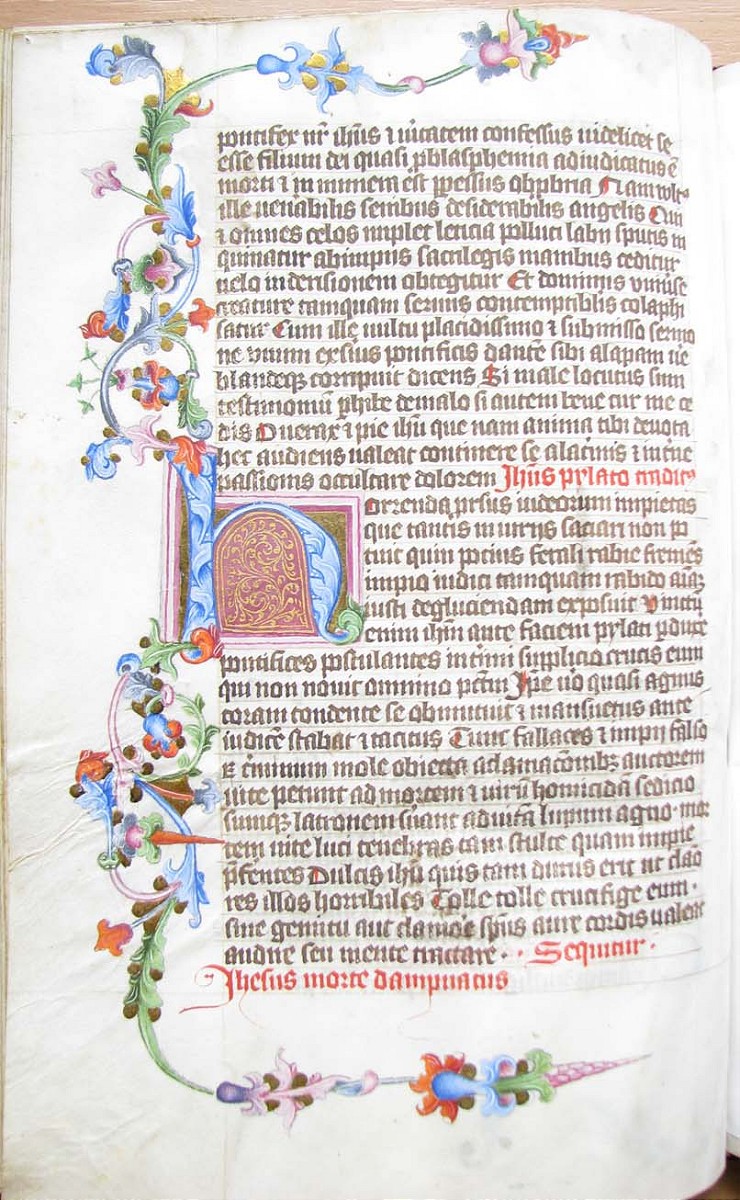 pontifex nr̄ ih̄us ⁊ uĩtatem confessus uidelicet se
esse filium dei quasi ꝑ blasphemia adiudicatus ē
morti ⁊ in inmera est ꝑpessus obꝑbria Nam
ille uenabilis senibus desiderabilis angelis Qui
⁊ omnes celos implet leticia pollutis labijs sputis in
quinatur ab impijs sacrilegis manibus ceditur
uelo in derisionem obtegitur Et dominus vniũse
creature tamquam seruus contemptiblis colaphi
satur Cum ille uultu placidissimo ⁊ submisso sermo
ne vnum ex suis pontificis dantē sibi alapam ue
blandeqꝫ corripuit dicens Si male locutus sum
testimoniū ꝑhibe de malo si autem bene cur me ce
dis O uerax ⁊ pie ih̄u que nam anima tibi deuota
hec audiens ualeat continere se a lac̃imis ⁊ int̃ne
passionis occultare dolorem Jh̄us pylato
Horrenda ꝓrsus iudeorum impietas
que tantis iniurijs saciari non po
tuit quin pocius ferali rabie fremēs
impio iudici tamquam rabido
iusti degluciendam exposuit vinctū
enim ih̄m ante faciem pylati
pontifices postulantes int̃imi supplicio crucis eum
qui non nouit omnino pctm̄ Jpe u̾o quasi agnus
coram tondente se obmutuit ⁊ mansuetus ante
iudicē stabat ⁊ tacitus Tunc fallaces ⁊ impij falso
ꝝ c̃minum mole obiecta acclamacōnibꝫ auctorem
uite petunt ad mortem ⁊ uirū homicidā sedicio
sumqꝫ latronem sũant ad uitā lupum agno mor
tem uite luci tenebras tam stulte quam impie
p̄ferentes Dulcis ih̄u quis tam durus erit ut clāo
res illos horribiles Tolle tolle crucifige eum.
sine gemitu aut clamore sp̄us aure cordis ualeat
audire seu mente tractare . . Sequitur .
Jhesus morte dampnatus